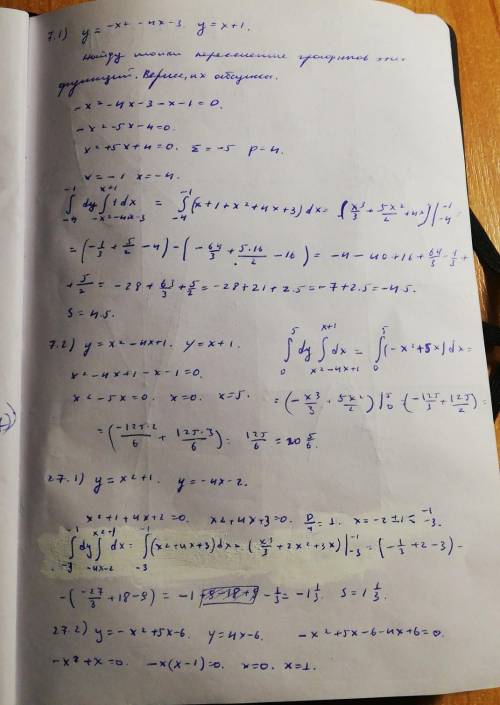 7.1) y = -x² - 4x - 3. y = x + 1.
Найду точки пересечение графиков этих
функций. Вернее, их абсциссы.
-x² - 4x - 3 - x - 1 = 0.
-x² - 5x - 4 = 0.
x² + 5x + 4 = 0. Σ = -5 p - 4.
x = -1 x = -4.
∫₋₄⁻¹ dy ∫_{-x²-4x-3}^{x+1} 1dx = ∫₋₄⁻¹ (x + 1 + x² + 4x + 3) dx = (x³/3 + 5x²/2 + 4x) |₋₄⁻¹ =
= (-1/3 + 5/2 - 4) - (-64/3 + 5·16/2 - 16) = -4 - 40 + 16 + 64/3 - 1/3 +
+ 5/2 = -28 + 63/3 + 5/2 = -28 + 21 + 2.5 = -7 + 2.5 = -4.5.
S = 4.5.
7.2) y = x² - 4x + 1. y = x + 1.
∫₀⁵ dy ∫_{x²-4x+1}^{x+1} dx = ∫₀⁵ (-x² + 5x) dx =
x² - 4x + 1 - x - 1 = 0.
x² - 5x = 0. x = 0. x = 5.
= (-x³/3 + 5x²/2) |₀⁵ = (-125/3 + 125/2) =
= (-125·2/6 + 125·3/6) = 125/6 = 20 5/6.
27.1) y = x² + 1. y = -4x - 2.
x² + 1 + 4x + 2 = 0. x² + 4x + 3 = 0. D/4 = 1. x = -2 ± 1 < -1 -3.
∫₋₃⁻¹ dy ∫_{-4x-2}^{x²+1} dx = ∫₋₃⁻¹ (x² + 4x + 3) dx = (x³/3 + 2x² + 3x) |₋₃⁻¹ = (-1/3 + 2 - 3) -
- (-27/3 + 18 - 9) = -1 - 1/3 = -1 1/3. S = 1 1/3.
27.2) y = -x² + 5x - 6. y = 4x - 6. -x² + 5x - 6 - 4x + 6 = 0.
-x² + x = 0. -x(x - 1) = 0. x = 0. x = 1.